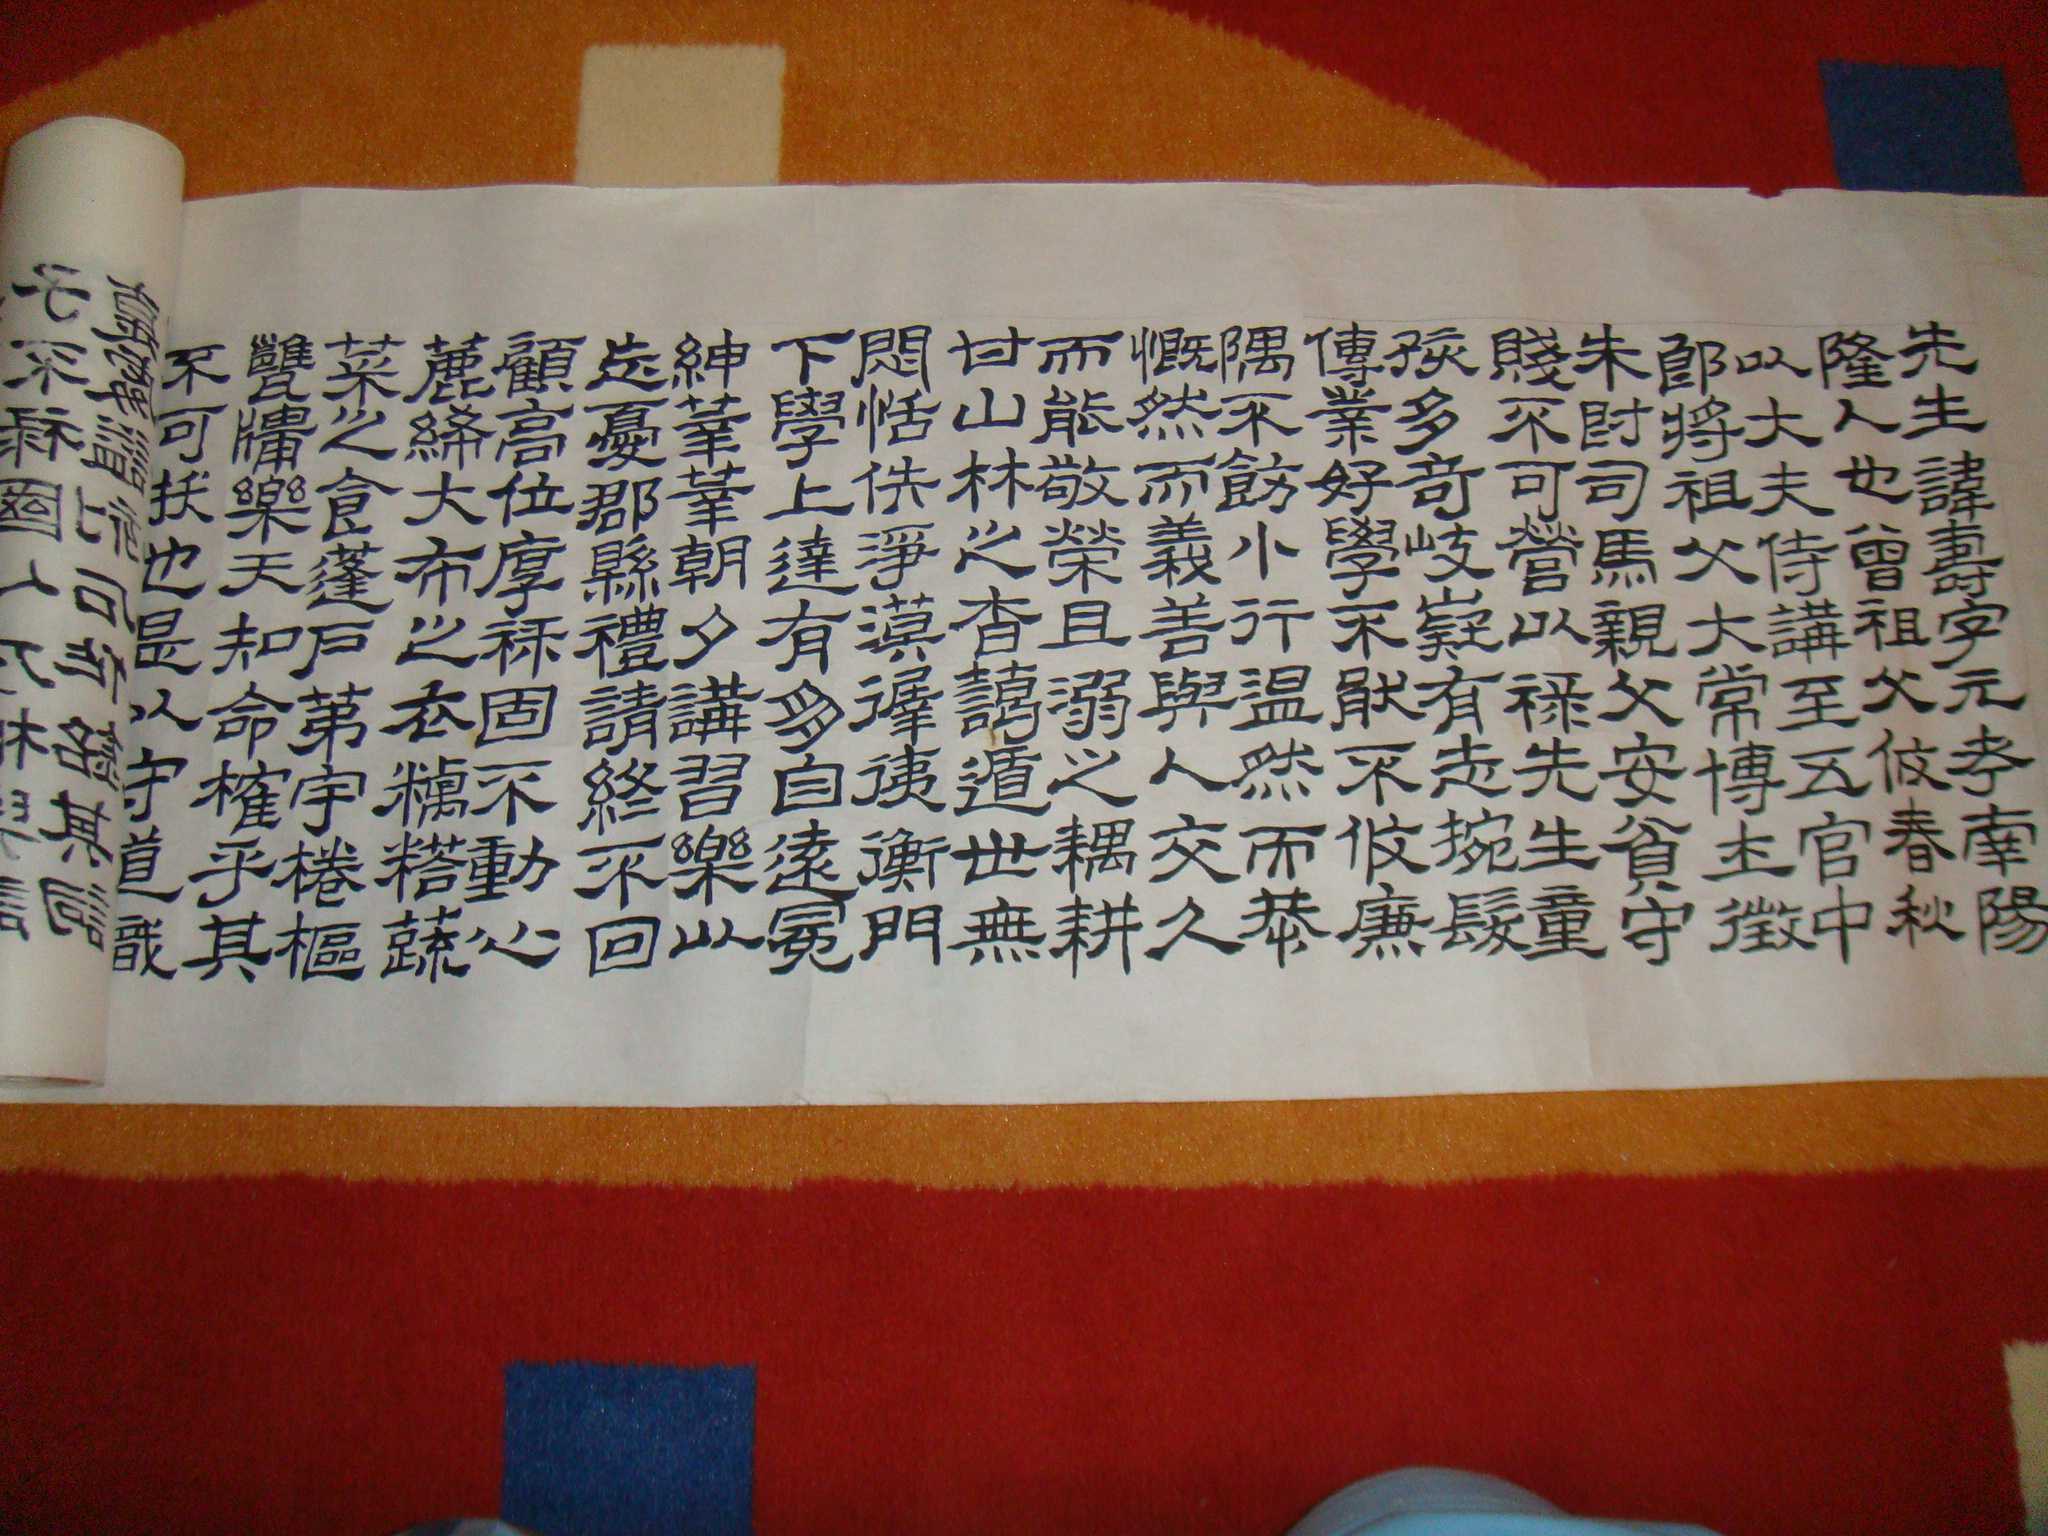 先生諱壽字元考南陽
隆人也曾祖父攸春秋
以大夫侍講至五官中
郎將祖父大常博士徵
朱爵司馬親父安貧守
賤不可營以祿先生童
孩多奇岐嶷有志捥髮
傳業好學不猒不攸廉
隅不飭小行溫然而恭
慨然而義善與人交久
而能敬榮且溺之耦耕
甘山林之杳藹遁世無
悶恬佚淨漠徲徥衡門
下學上達有朋自遠冕
紳莘莘朝夕講習樂以
忘憂郡縣禮請終不回
顧高位厚祿固不動心
麤絺大布之衣糲荅蔬
菜之食蓬戶茅宇棬樞
甕牖樂天知命榷乎其
不可拔也是以守道識